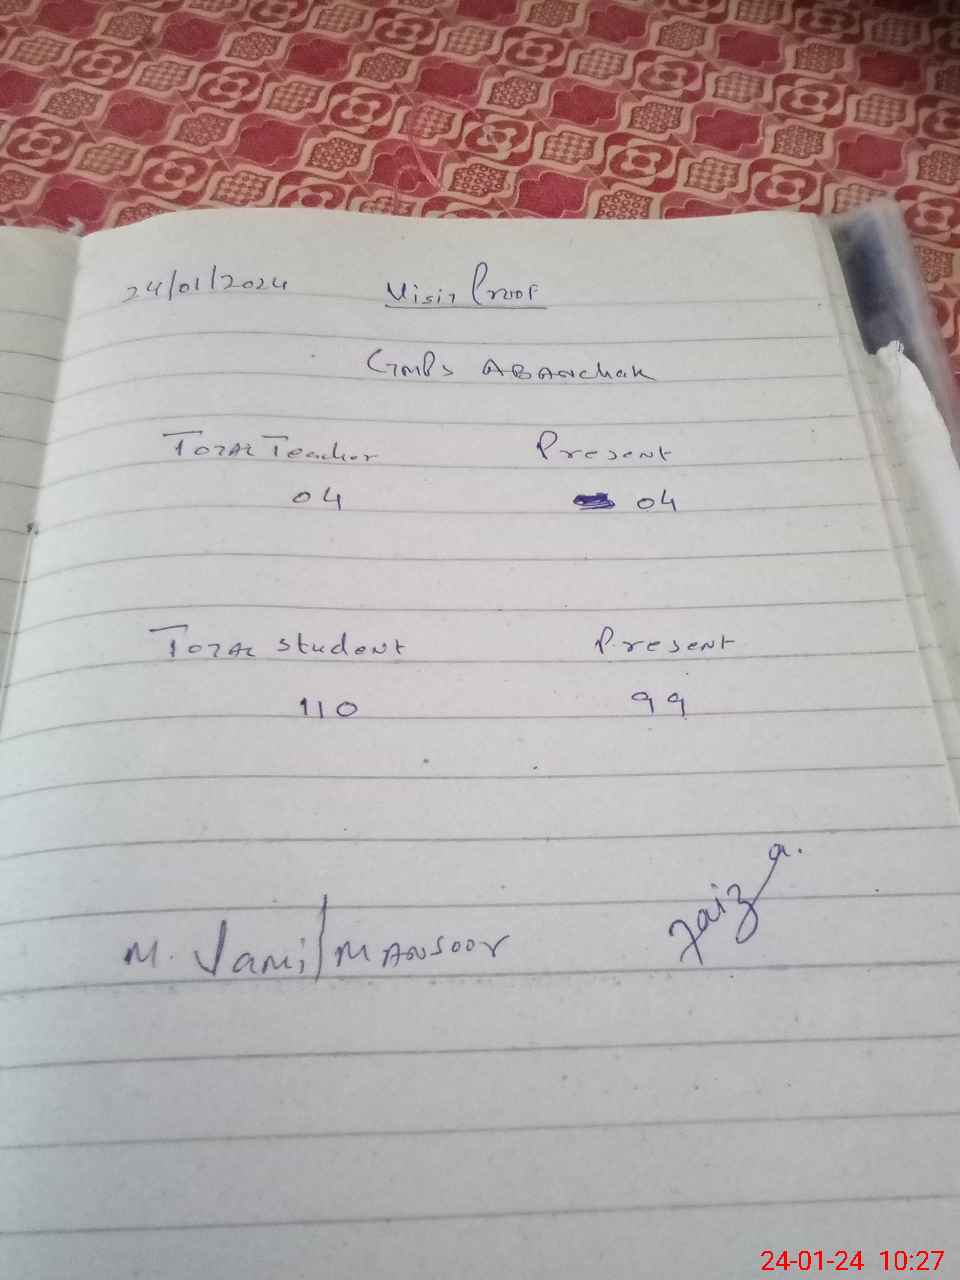 24/01/2024 Visit Proof
GMPS ABANchak
Total Teacher Present
04 04
Total Student Present
110 99
M. Jamil MANSOOR Faiz a.
24-01-24 10:27